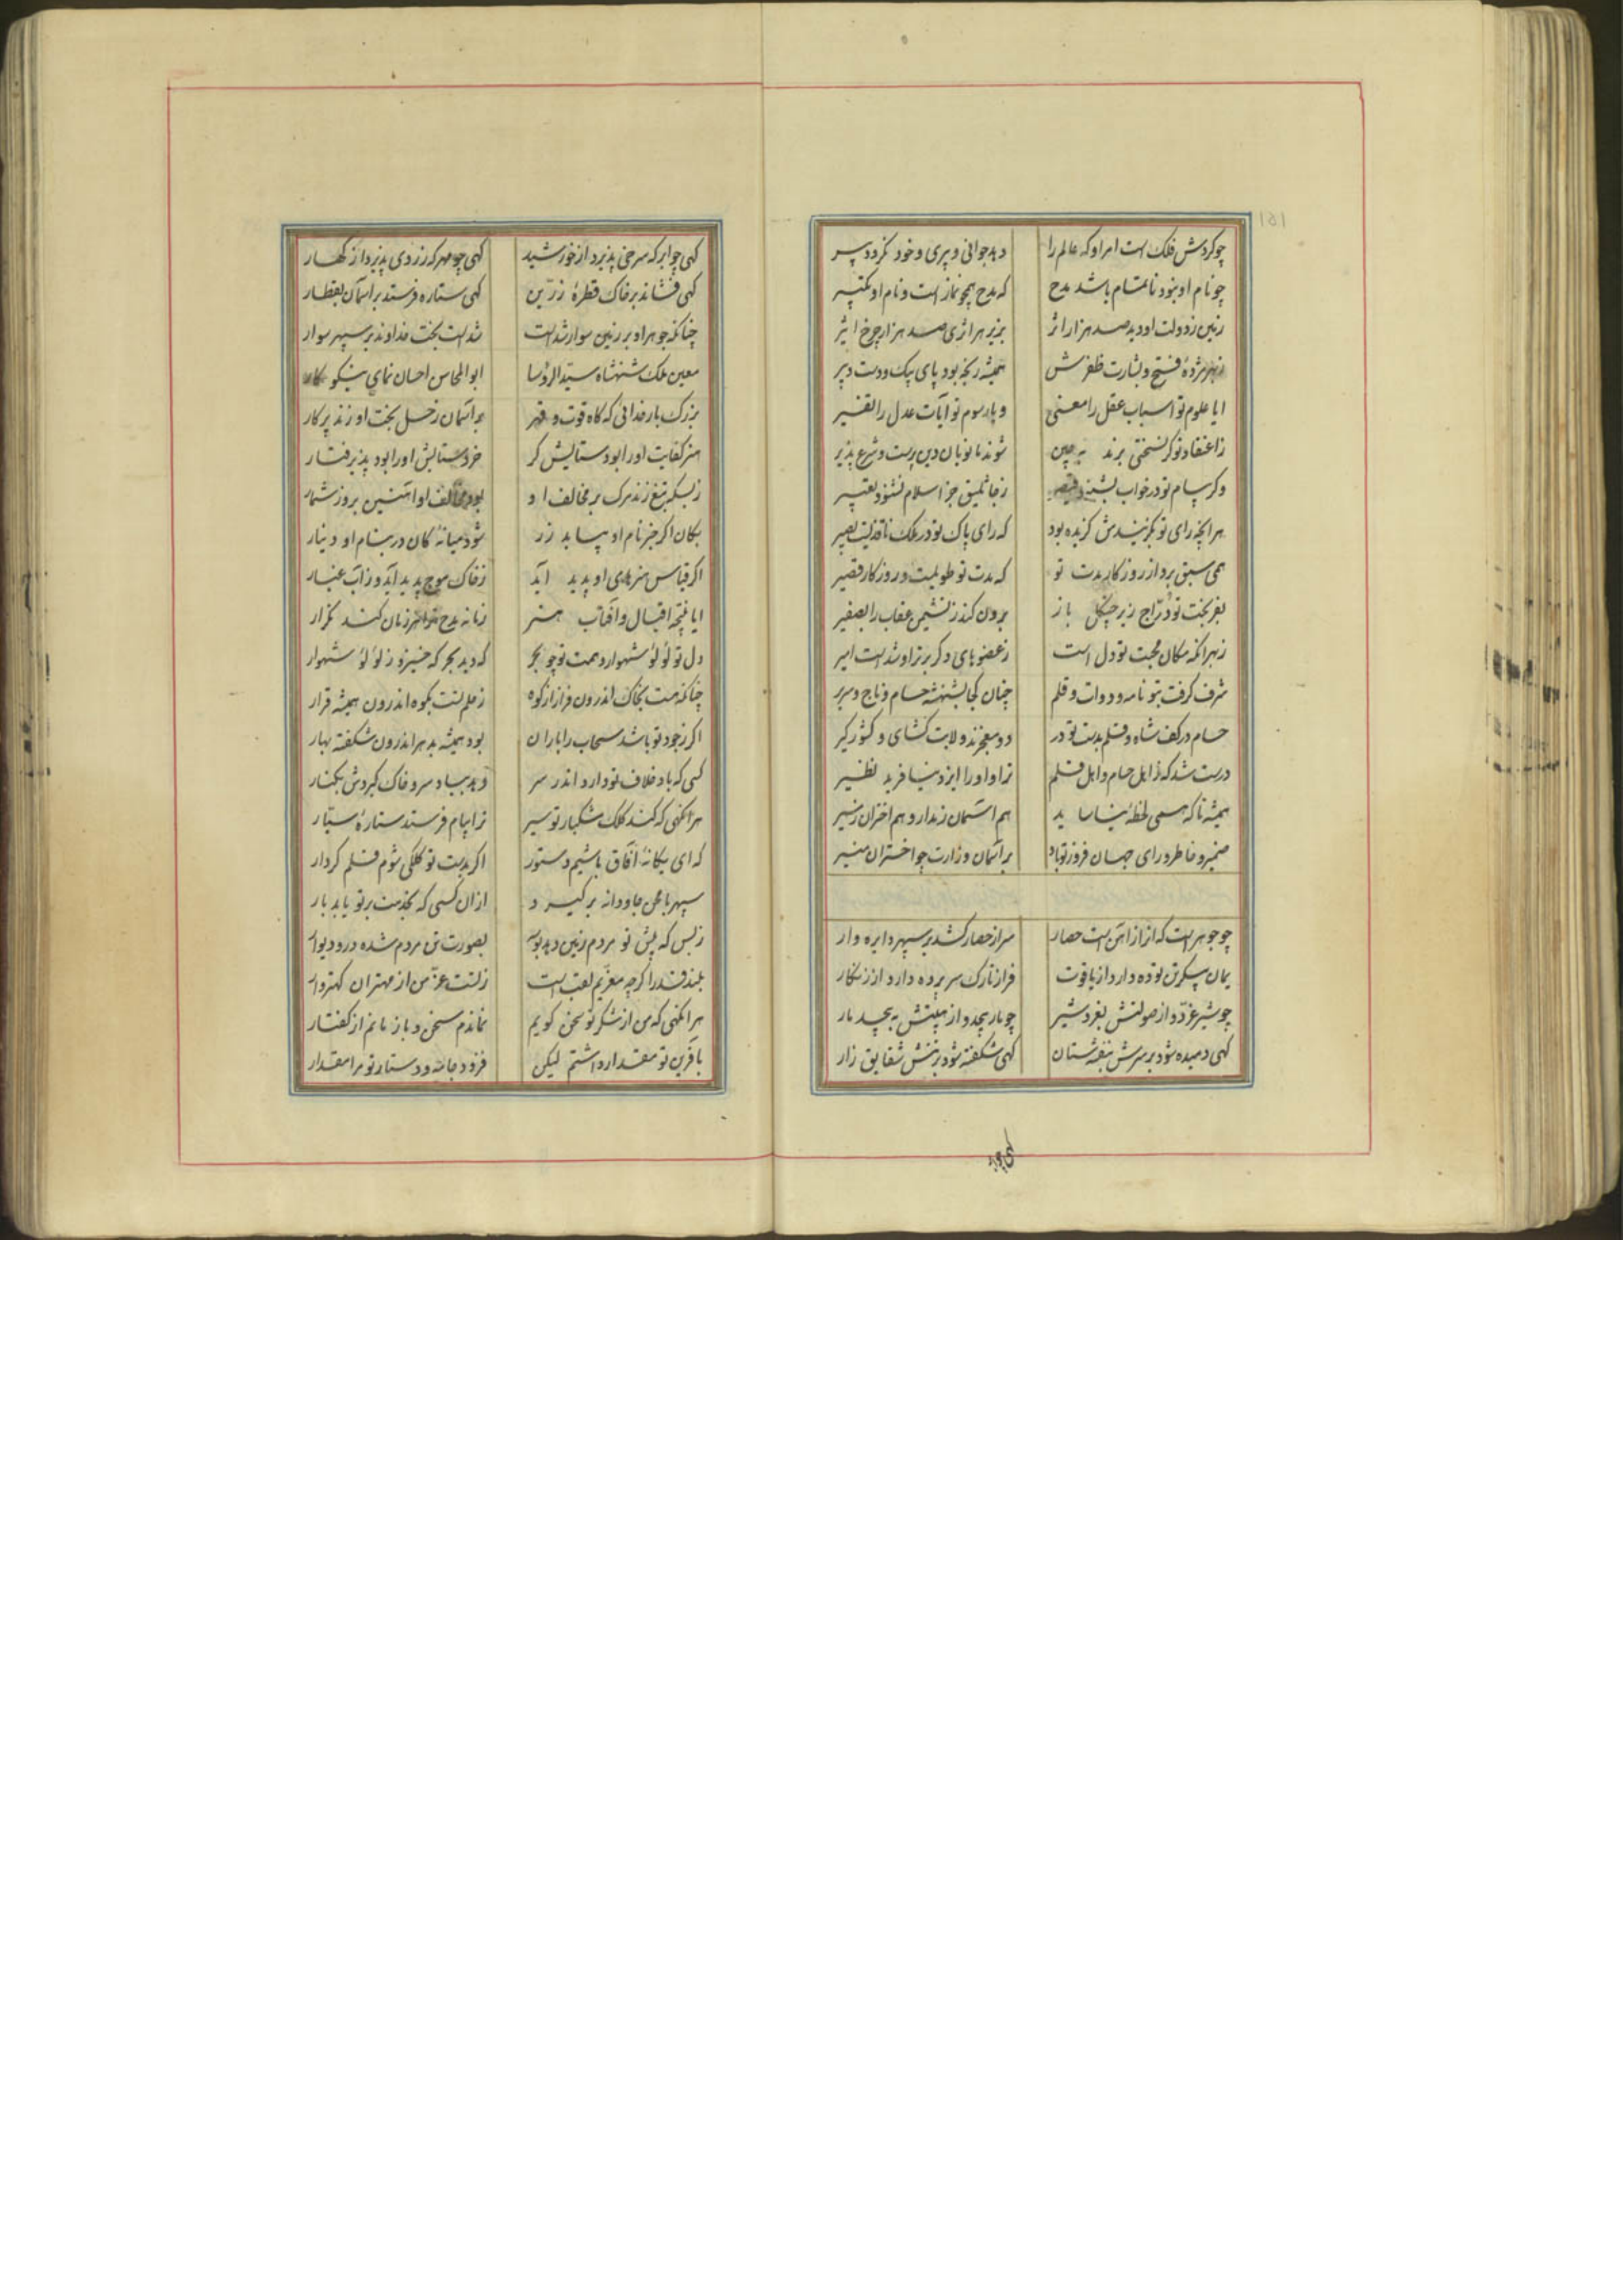 چو گردش فلک است امر او که عالم را دهد جوانی و پیری و خود نگردد پیر
چو نام او نبود ناتمام باشد مدح که مدح همچو نماز است و نام او تکبیر
زمین ز دولت او دید صد هزار اثر بزیر هر اثری صد هزار چرخ اثیر
ز بهر مژدهٔ فتح و بشارت ظفرش همیشه رنجه بود پای پیک و دست دبیر
ایا علوم تو اسباب عقل را معنی و یا رسوم تو آیات عدل را تفسیر
ز اعتقاد تو گر نسختی برند به چین شوند مانویان دین پرست و شرع پذیر
وگر پیام تو در خواب بشنود قیصر ز جاثلیق جز اسلام نشنود تعبیر
هر آنچه رای تو بگزیندش گزیده بود که رای پاک تو در ملک ناقدیست بصیر
همی سبق برد از روزگار مدت تو که مدت تو طویلست و روزگار قصیر
بفر بخت تو درّاج زیر چنگل باز برون کند ز نشیمن عقاب را بصفیر
ز بهر آنکه مکان محبت تو دل است ز عضوهای دگر برتر او شد است امیر
شرف گرفت بتو نامه و دوات و قلم چنان کجا بشهنشه حسام و تاج و سریر
حسام در کف شاه و قلم بدست تو در دو معجزند ولایت گشای و کشور گیر
درست شد که ز اهل حسام و اهل قلم ترا و او را ایزد نیافرید نظیر
همیشه تا که همی لحظهٔ نیاساید هم آسمان ز مدار و هم اختران ز مسیر
ضمیر و خاطر و رای جهان فروز تو باد بر آسمان وزارت چو اختران منیر
چو جوهر است که از آهن است حصار سر از حصار کشد بر سپهر دایره وار
میان پیکرش توده دارد از یاقوت فراز تارک سرپرده دارد از زنگار
چو شیر غرّد و از صولتش بغرد شیر چو مار پیچد و از هیبتش بپیچد مار
گهی دمیده شود بر سرش بنفشستان گهی شکفته شود بر تنش شقایق زار
گهی چو ابر که سرخی پذیرد از خورشید گهی چو مهر که زردی پذیرد از کهسار
گهی فشاند بر خاک قطرهٔ زرّین گهی ستاره فرستد بر آسمان بقطار
چنانکه جوهر او بر زمین سوار شد است شد است بخت خداوند بر سپهر سوار
معین ملک شهنشاه سیّد الرؤسا ابوالمحاسن احسان نمای نیکو کار
بزرگ بار خدائی که گاه قوت و قهر بر آسمان زحل بخت او زند پرگار
هنر کفایت او را بود ستایش گر خرد ستایش او را بود پذیرفتار
ز بسکه تیغ زند مرگ بر مخالف او بود مخالف او آهنین بروز شمار
بکان اگر خبر نام او بیابد زر شود میانهٔ کان در بنام او دینار
اگر قیاس هنرهای او پدید آید ز خاک موج پدید آید و ز آب غبار
ایا نتیجه اقبال و آفتاب هنر زمانه مدح ترا هر زمان کند تکرار
دل تو لؤلؤ شهوار و همت تو چو بحر که دید بحر که خیزد ز لؤلؤ شهوار
چنانکه هست بخاک اندرون فراز از کوه ز حلم تست بکوه اندرون همیشه قرار
اگر ز جود تو باشد سحاب را باران بود همیشه بدهر اندرون شکفته بهار
کسی که باد خلاف تو دارد اندر سر دهد بباد سر و خاک گیردش بکنار
هر آنگهی که کند کلک مشکبار تو سیر ترا پیام فرستد ستارهٔ سیّار
که ای یگانهٔ آفاق باشیم دستور اگر بدست تو کلکی شوم قلم کردار
سپهر با من جاودانه برگیرد از آن کسی که بخدمت بر تو یابد بار
ز بس که پیش تو مردم زمین دهد بوسه بصورت تن مردم شده در و دیوار
بلند قدرا گرچه معزّیم لقب است ز تست عزّ من از مهتران گهتر وار
هر آنگهی که من از شکر تو سخن گویم نماندم سخن و باز مانم از گفتار
بآفرین تو مقدار داشتم لیکن فزود جامه و دستار تو مرا مقدار